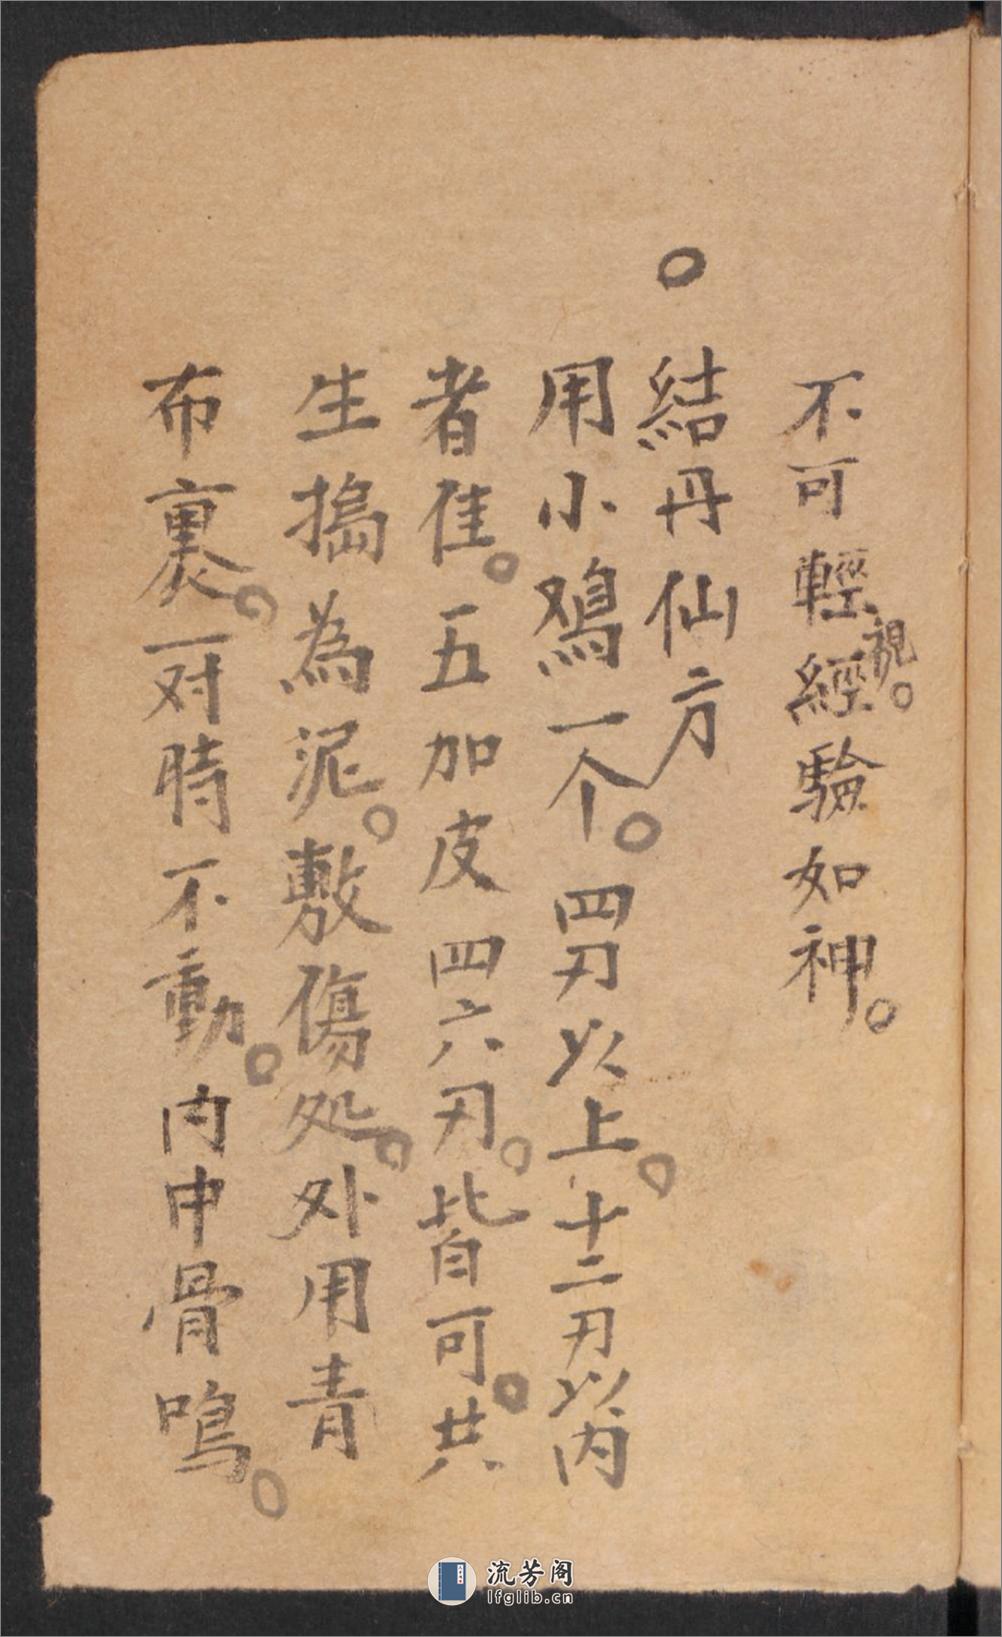 不可輕視。經驗如神。
○結丹仙方
用小鳮一个。四刄以上。十二刄以內
者隹。五加皮四六刄。皆可。共
生搗為泥。敷傷处。外用青
布裹。一对時不動。內中骨鳴。
流芳阁
lfglib.cn